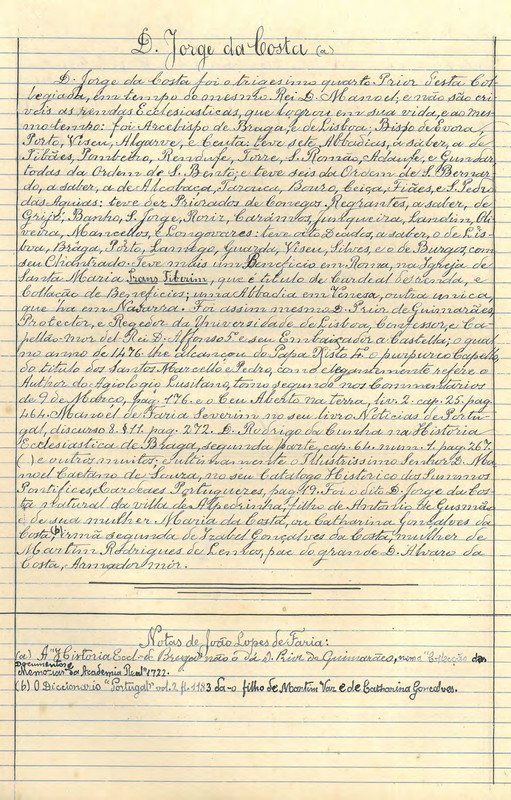 D. Jorge da Costa (a)
D. Jorge da Costa foi o trigesimo quarto Prior desta Col-
legiada, em tempo do mesmo Rei D. Manoel; e não são cri-
veis as rendas Ecclesiasticas, que logrou em sua vida, e ao mes-
mo tempo: foi Arcebispo de Braga, e de Lisboa; Bispo de Evora,
Porto, Viseu, Algarve, e Ceuta: teve sete Abbadias, a saber, a de
Tibães, Pombeiro, Rendufe, Torre, S. Romão, Adaufe, e Gundar
todas da Ordem de S. Bento; e teve seis da Ordem de S. Bernar-
do, a saber, a de Alcobaça, Tarouca, Bouro, Ceiça, Fiães, e S. Pedro
das Aguias: teve dez Priorados de Conegos Regrantes, a saber, de
Grijó, Banho, S. Jorge, Roriz, Caramos, Junqueira, Landim, Oli-
veira, Mancellos, e Longovares: teve oito Deados, a saber, o de Lis-
boa, Braga, Porto, Lamego, Guarda, Viseu, Silves, e o de Burgos, com
seu Chantrado. Teve mais um Beneficio em Roma, na Igreja de
Santa Maria Trans Tiberim, que é titulo de Cardeal de renda, e
Collação de Beneficios; uma Abbadia em Venesa, outra unica,
que ha em Navarra. Foi assim mesmo D. Prior de Guimarães,
Protector, e Regedor da Universidade de Lisboa, Confessor, e Ca-
pellão-mor del-Rei D. Affonso 5º e seu Embaixador a Castella; o qual
no anno de 1476 lhe alcançou do Papa Xisto 4º o purpureo Capello,
do titulo dos Santos Marcello e Pedro, como elegantemente refere o
Author do Agiologio Lusitano, tomo segundo nos Commentarios
de 9 de Março, pag. 176. e o Ceu Aberto na terra, liv. 2. cap. 25. pag.
464. Manoel de Faria Severim no seu livro Noticias de Portu-
gal, discurso 8. § 11. pag. 272. D. Rodrigo da Cunha na Historia
Ecclesiastica de Braga, segunda parte, cap. 64. num. 1. pag. 267.
( ) e outros muitos; e ultimamente o Illustrissimo Senhor D. Ma-
noel Caetano de Sousa, no seu Catalogo Historico dos Summos
Pontifices, e Cardeaes Portuguezes, pag. 19. Foi o dito D. Jorge da Cos-
ta natural da villa de Alpedrinha, filho de Antonio de Gusmão
e de sua mulher Maria da Costa, ou Catharina Gonçalves da
Costa, (b) irmã segunda de Izabel Gonçalves da Costa, mulher de
Martim Rodrigues de Lemos, pae do grande D. Alvaro da
Costa, Armador mór.
Notas de João Lopes de Faria:
(a) A "Historia Eccl. de Braga" não o dá D. Prior de Guimarães, nem a "Collecção dos
Documentos e
Memorias da Academia Real" 1722.
(b) O Diccionario "Portugal" vol. 2 fl. 1183 dá-o filho de Martim Vaz e de Catharina Gonçalves.